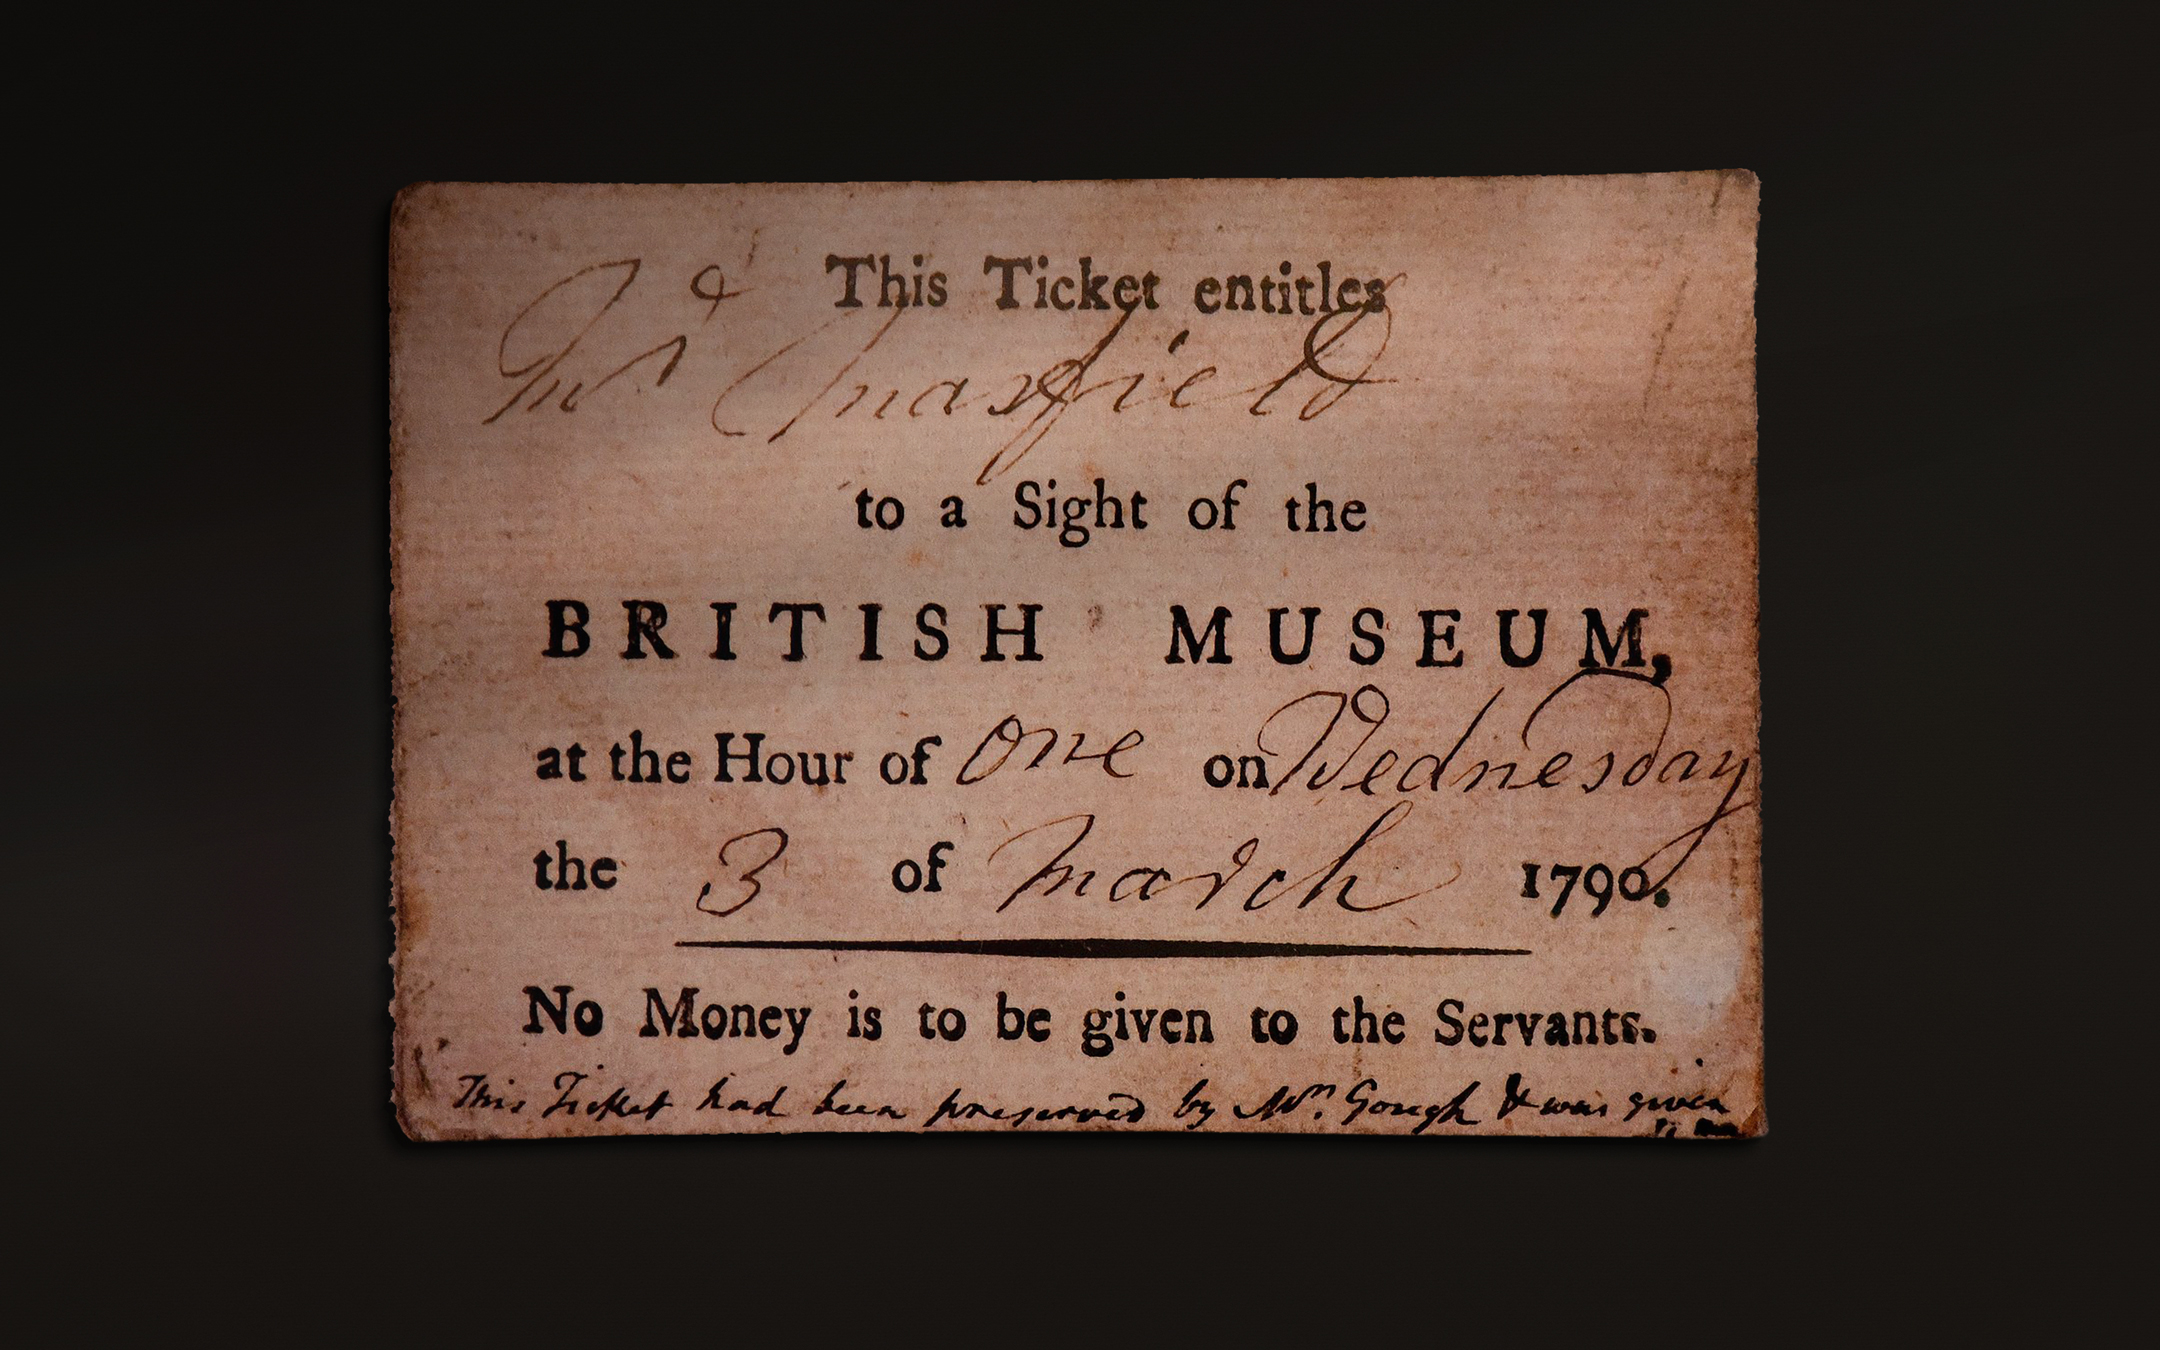 This Ticket entitles
Mr Maxfield
to a Sight of the
BRITISH MUSEUM,
at the Hour of One on Wednesday
the 3 of March 1790.
No Money is to be given to the Servants.
This Ticket had been preserved by Mr. Gough & was given